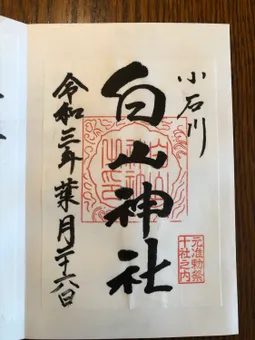 小石川
白山神社
元准勅祭
十社之内
令和三年葉月二十六日